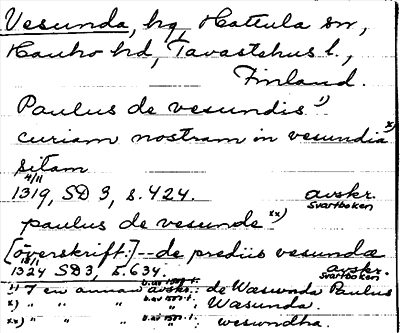 Vesunda, hg, Hattula sn,
Hauho hd, Tavastehus l.,
Finland.
Paulus de vesundis ¹)
curiam nostram in vesundia x)
sitam
4/11
1319, SD 3, s. 424. avskr. Svartboken
paulus de vesunde xx)
[överskrift:] -- de prediis vesundæ
1324 SD 3, s. 634. avskr. Svartboken
¹) I en annan avskr.: de Wasunda Paulus
x) " " " " : Wasunda.
xx) " " " " : wesundha.